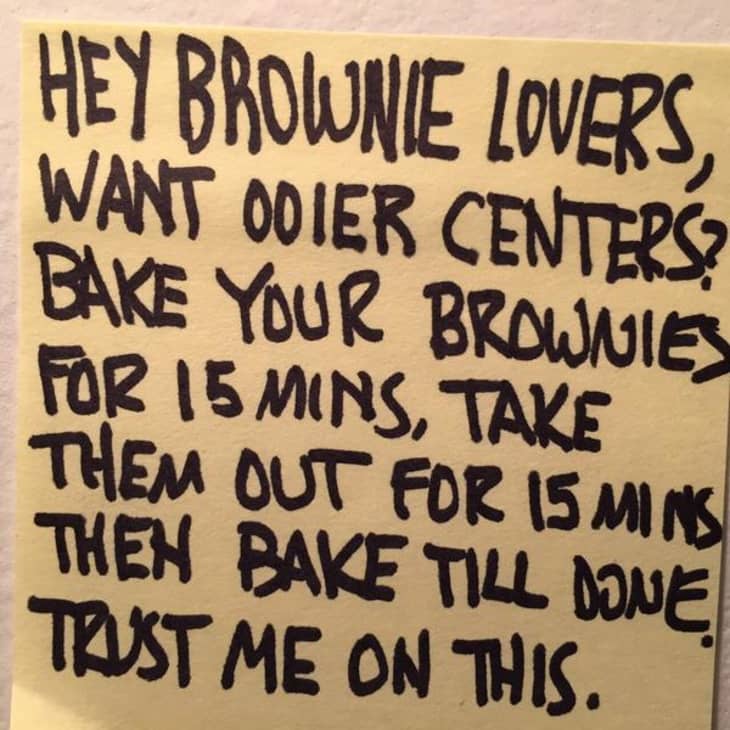 HEY BROWNIE LOVERS,
WANT OOIER CENTERS?
BAKE YOUR BROWNIES
FOR 15 MINS, TAKE
THEM OUT FOR 15 MINS
THEN BAKE TILL DONE.
TRUST ME ON THIS.